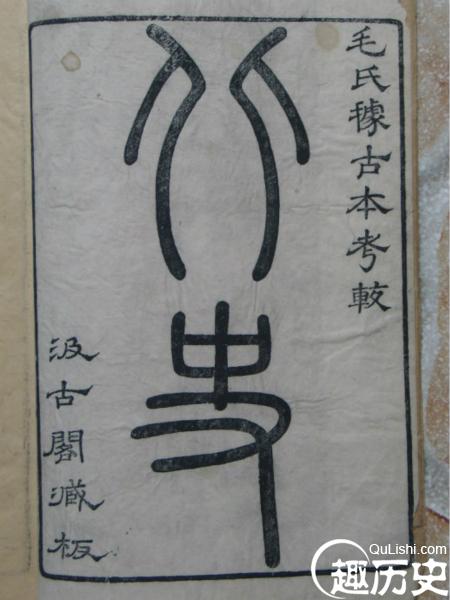 毛氏據古本考較
北史
汲古閣藏板
QuLishi.com
趣历史